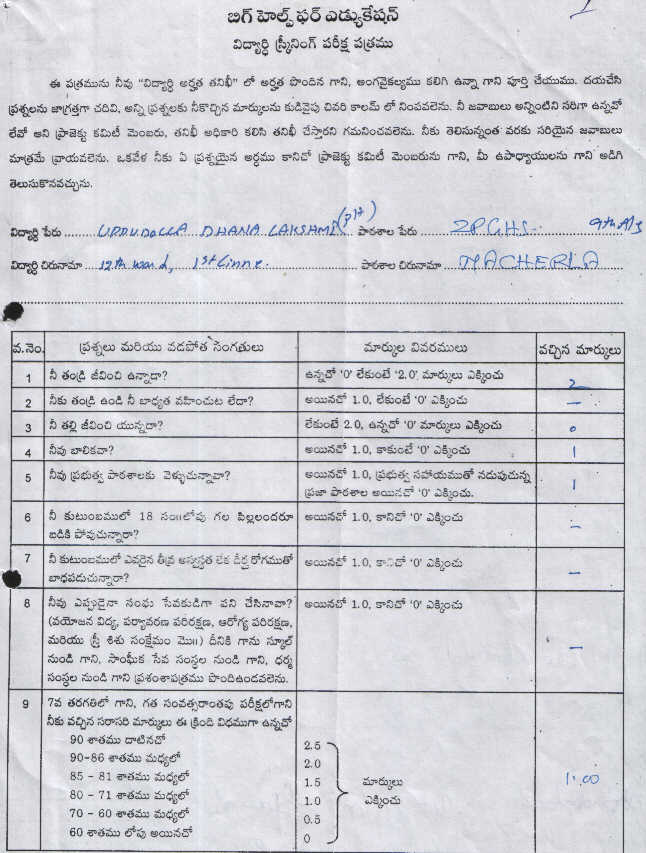 బిగ్ హెల్ప్ ఫర్ ఎడ్యుకేషన్
విద్యార్థి స్క్రీనింగ్ పరీక్ష పత్రము
ఈ పత్రమును నీవు "విద్యార్థి అర్హత తనిఖీ" లో అర్హత పొందిన గాని, అంగవైకల్యము కలిగి ఉన్నా గాని పూర్తి చేయుము. దయచేసి
ప్రశ్నలను జాగ్రత్తగా చదివి, అన్ని ప్రశ్నలకు నీకొచ్చిన మార్కులను కుడివైపు చివరి కాలమ్ లో నింపవలెను. నీ జవాబులు అన్నింటిని సరిగా ఉన్నవో
లేవో అని ప్రాజెక్టు కమిటీ మెంబరు, తనిఖీ అధికారి కలిసి తనిఖీ చేస్తారని గమనించవలెను. నీకు తెలిసున్నంత వరకు సరియైన జవాబులు
మాత్రమే వ్రాయవలెను. ఒకవేళ నీకు ఏ ప్రశ్నయైన అర్థము కానిచో ప్రాజెక్టు కమిటీ మెంబరును గాని, మీ ఉపాధ్యాయులను గాని అడిగి
తెలుసుకొనవచ్చును.
విద్యార్థి పేరు UPPUDOLLA DHANA LAKSHMI (PH) పాఠశాల పేరు ZPGHS. 9th A/s
విద్యార్థి చిరునామా 12th ward, 1st Linne. పాఠశాల చిరునామా MACHERLA
వ.నెం. ప్రశ్నలు మరియు వడపోత సంగతులు మార్కుల వివరములు వచ్చిన మార్కులు
1 నీ తండ్రి జీవించి ఉన్నాడా? ఉన్నచో '0' లేకుంటే '2.0' మార్కులు ఎక్కించు 2
2 నీకు తండ్రి ఉండి నీ బాధ్యత వహించుట లేదా? అయినచో 1.0, లేకుంటే '0' ఎక్కించు –
3 నీ తల్లి జీవించి యున్నదా? లేకుంటే 2.0, ఉన్నచో '0' మార్కులు ఎక్కించు 0
4 నీవు బాలికవా? అయినచో 1.0, కాకుంటే '0' ఎక్కించు 1
5 నీవు ప్రభుత్వ పాఠశాలకు వెళ్ళుచున్నావా? అయినచో 1.0, ప్రభుత్వ సహాయముతో నడుపుచున్న
ప్రజా పాఠశాల అయినచో '0' ఎక్కించు. 1
6 నీ కుటుంబములో 18 సం॥లోపు గల పిల్లలందరూ అయినచో 1.0, కానిచో '0' ఎక్కించు
బడికి పోవుచున్నారా? –
7 నీ కుటుంబములో ఎవరైన తీవ్ర అస్వస్థత లేక దీర్ఘ రోగముతో అయినచో 1.0, కానిచో '0' ఎక్కించు
బాధపడుచున్నారా? –
8 నీవు ఎప్పుడైనా సంఘ సేవకుడిగా పని చేసినావా? అయినచో 1.0, కానిచో '0' ఎక్కించు
(వయోజన విద్య, పర్యావరణ పరిరక్షణ, ఆరోగ్య పరిరక్షణ,
మరియు స్త్రీ శిశు సంక్షేమం మొ॥) దీనికి గాను స్కూల్ –
నుండి గాని, సాంఘీక సేవ సంస్థల నుండి గాని, ధర్మ
సంస్థల నుండి గాని ప్రశంశాపత్రము పొందిఉండవలెను.
9 7వ తరగతిలో గాని, గత సంవత్సరాంతపు పరీక్షలోగాని
నీకు వచ్చిన సరాసరి మార్కులు ఈ క్రింది విధముగా ఉన్నచో
90 శాతము దాటినచో 2.5
90-86 శాతము మధ్యలో 2.0
85 – 81 శాతము మధ్యలో 1.5 మార్కులు 1.00
80 – 71 శాతము మధ్యలో 1.0 ఎక్కించు
70 – 60 శాతము మధ్యలో 0.5
60 శాతము లోపు అయినచో 0